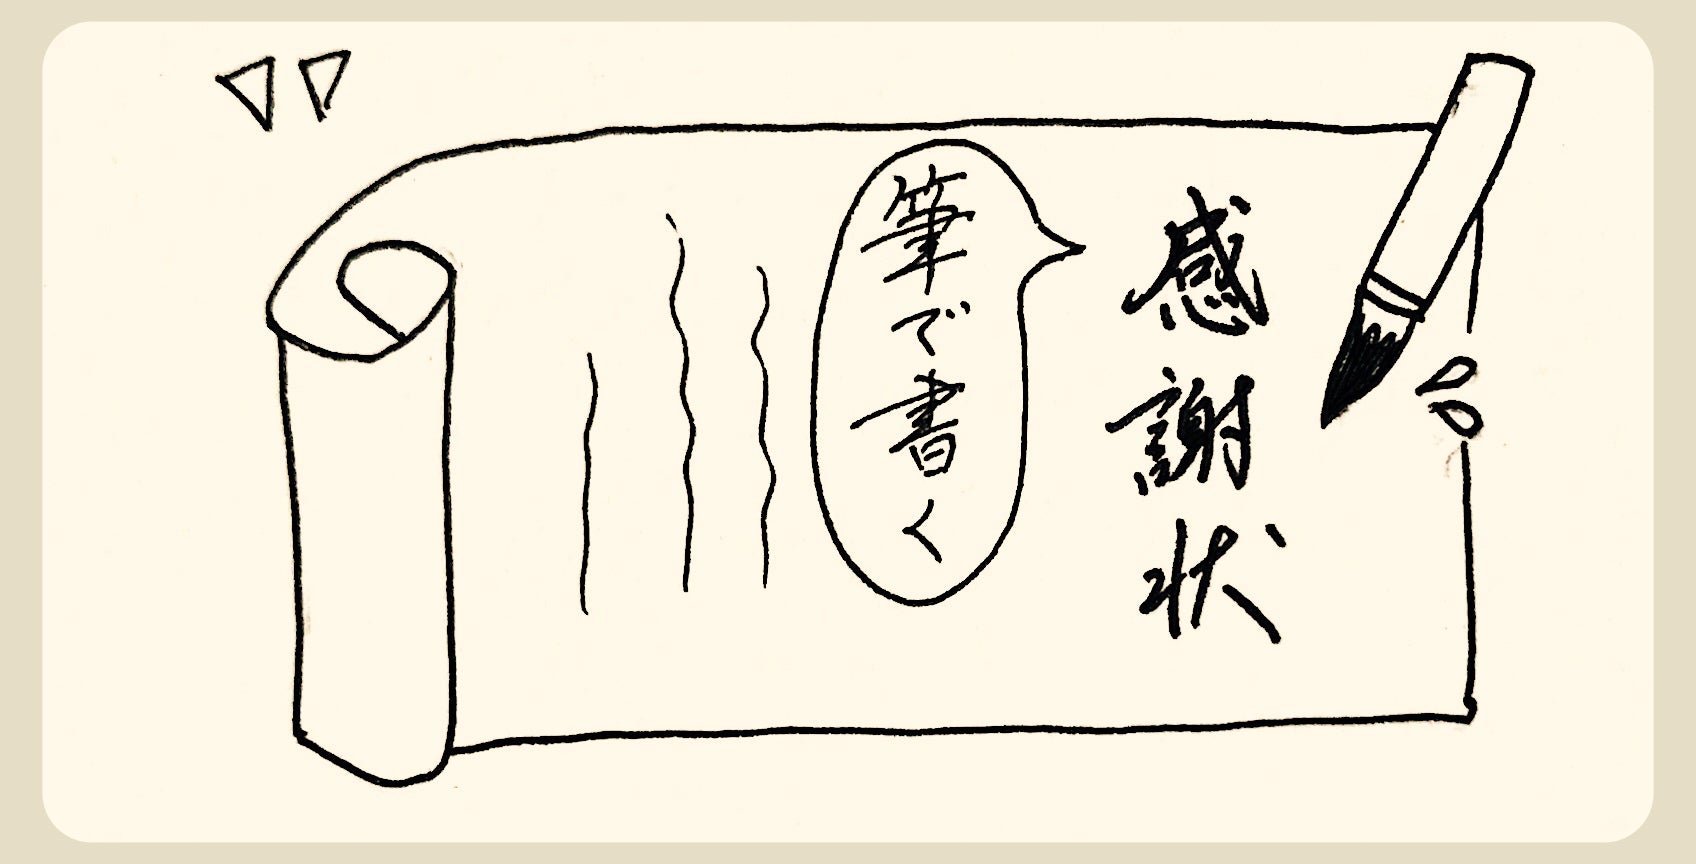 感謝状
筆で書く